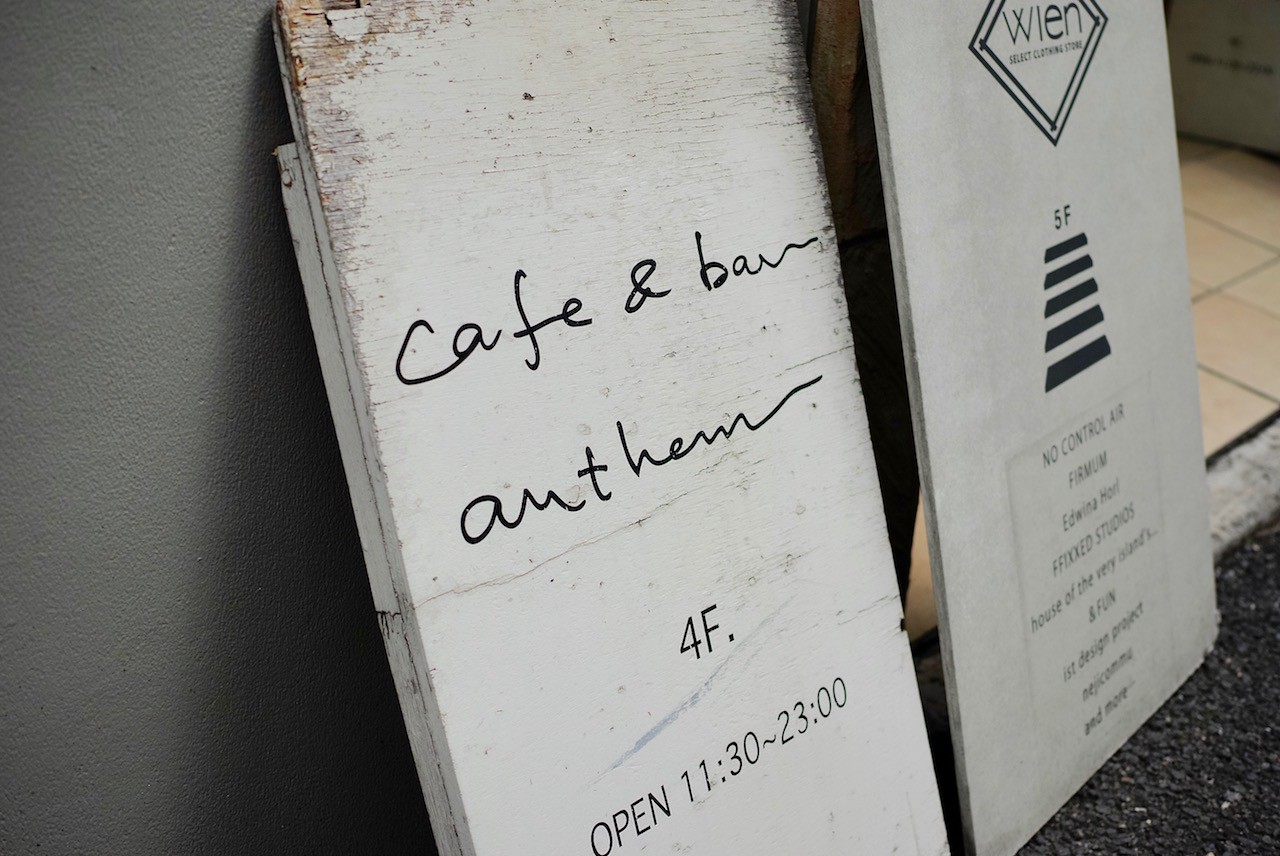 cafe & bar
anthem
4F.
OPEN 11:30~23:00
wien
SELECT CLOTHING STORE
5F
NO CONTROL AIR
FIRMUM
Edwina Horl
FFIXXED STUDIOS
house of the very island's...
&FUN
ist design project
nejicommu
and more...